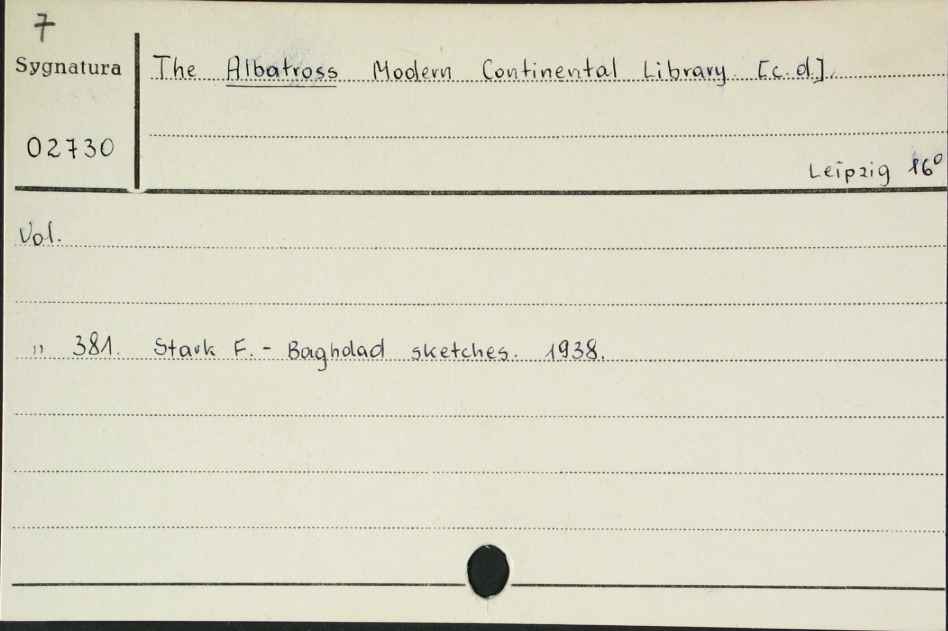 7
Sygnatura
The Albatross Modern Continental Library. [c.d.].
02730
Leipzig 16°
Vol.
" 381. Stark F. - Baghdad sketches. 1938.